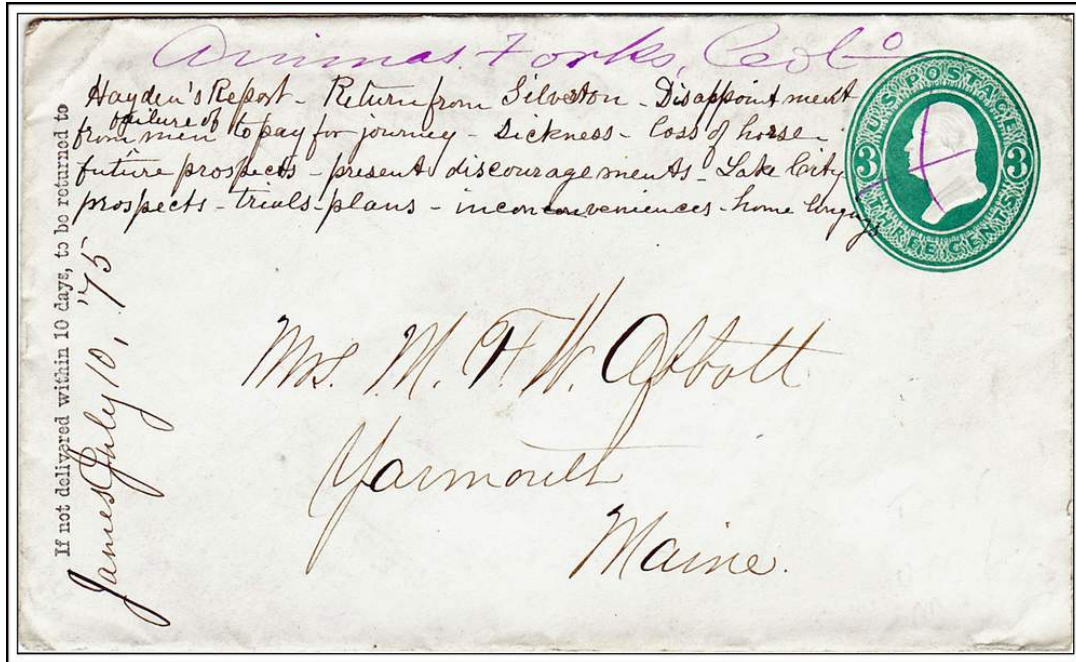 Animas Forks, Colo
Hayden's Report - Return from Silverton - Disappointment
from failure of men to pay for journey - Sickness - loss of horse -
future prospects - present discouragements - Lake City
prospects - trials - plans - inconconveniences - home
U.S. POSTAGE
3 3
THREE CENTS
If not delivered within 10 days, to be returned to
James July 10, '75
Mrs. M. F. W. Abbott
Yarmouth
Maine.